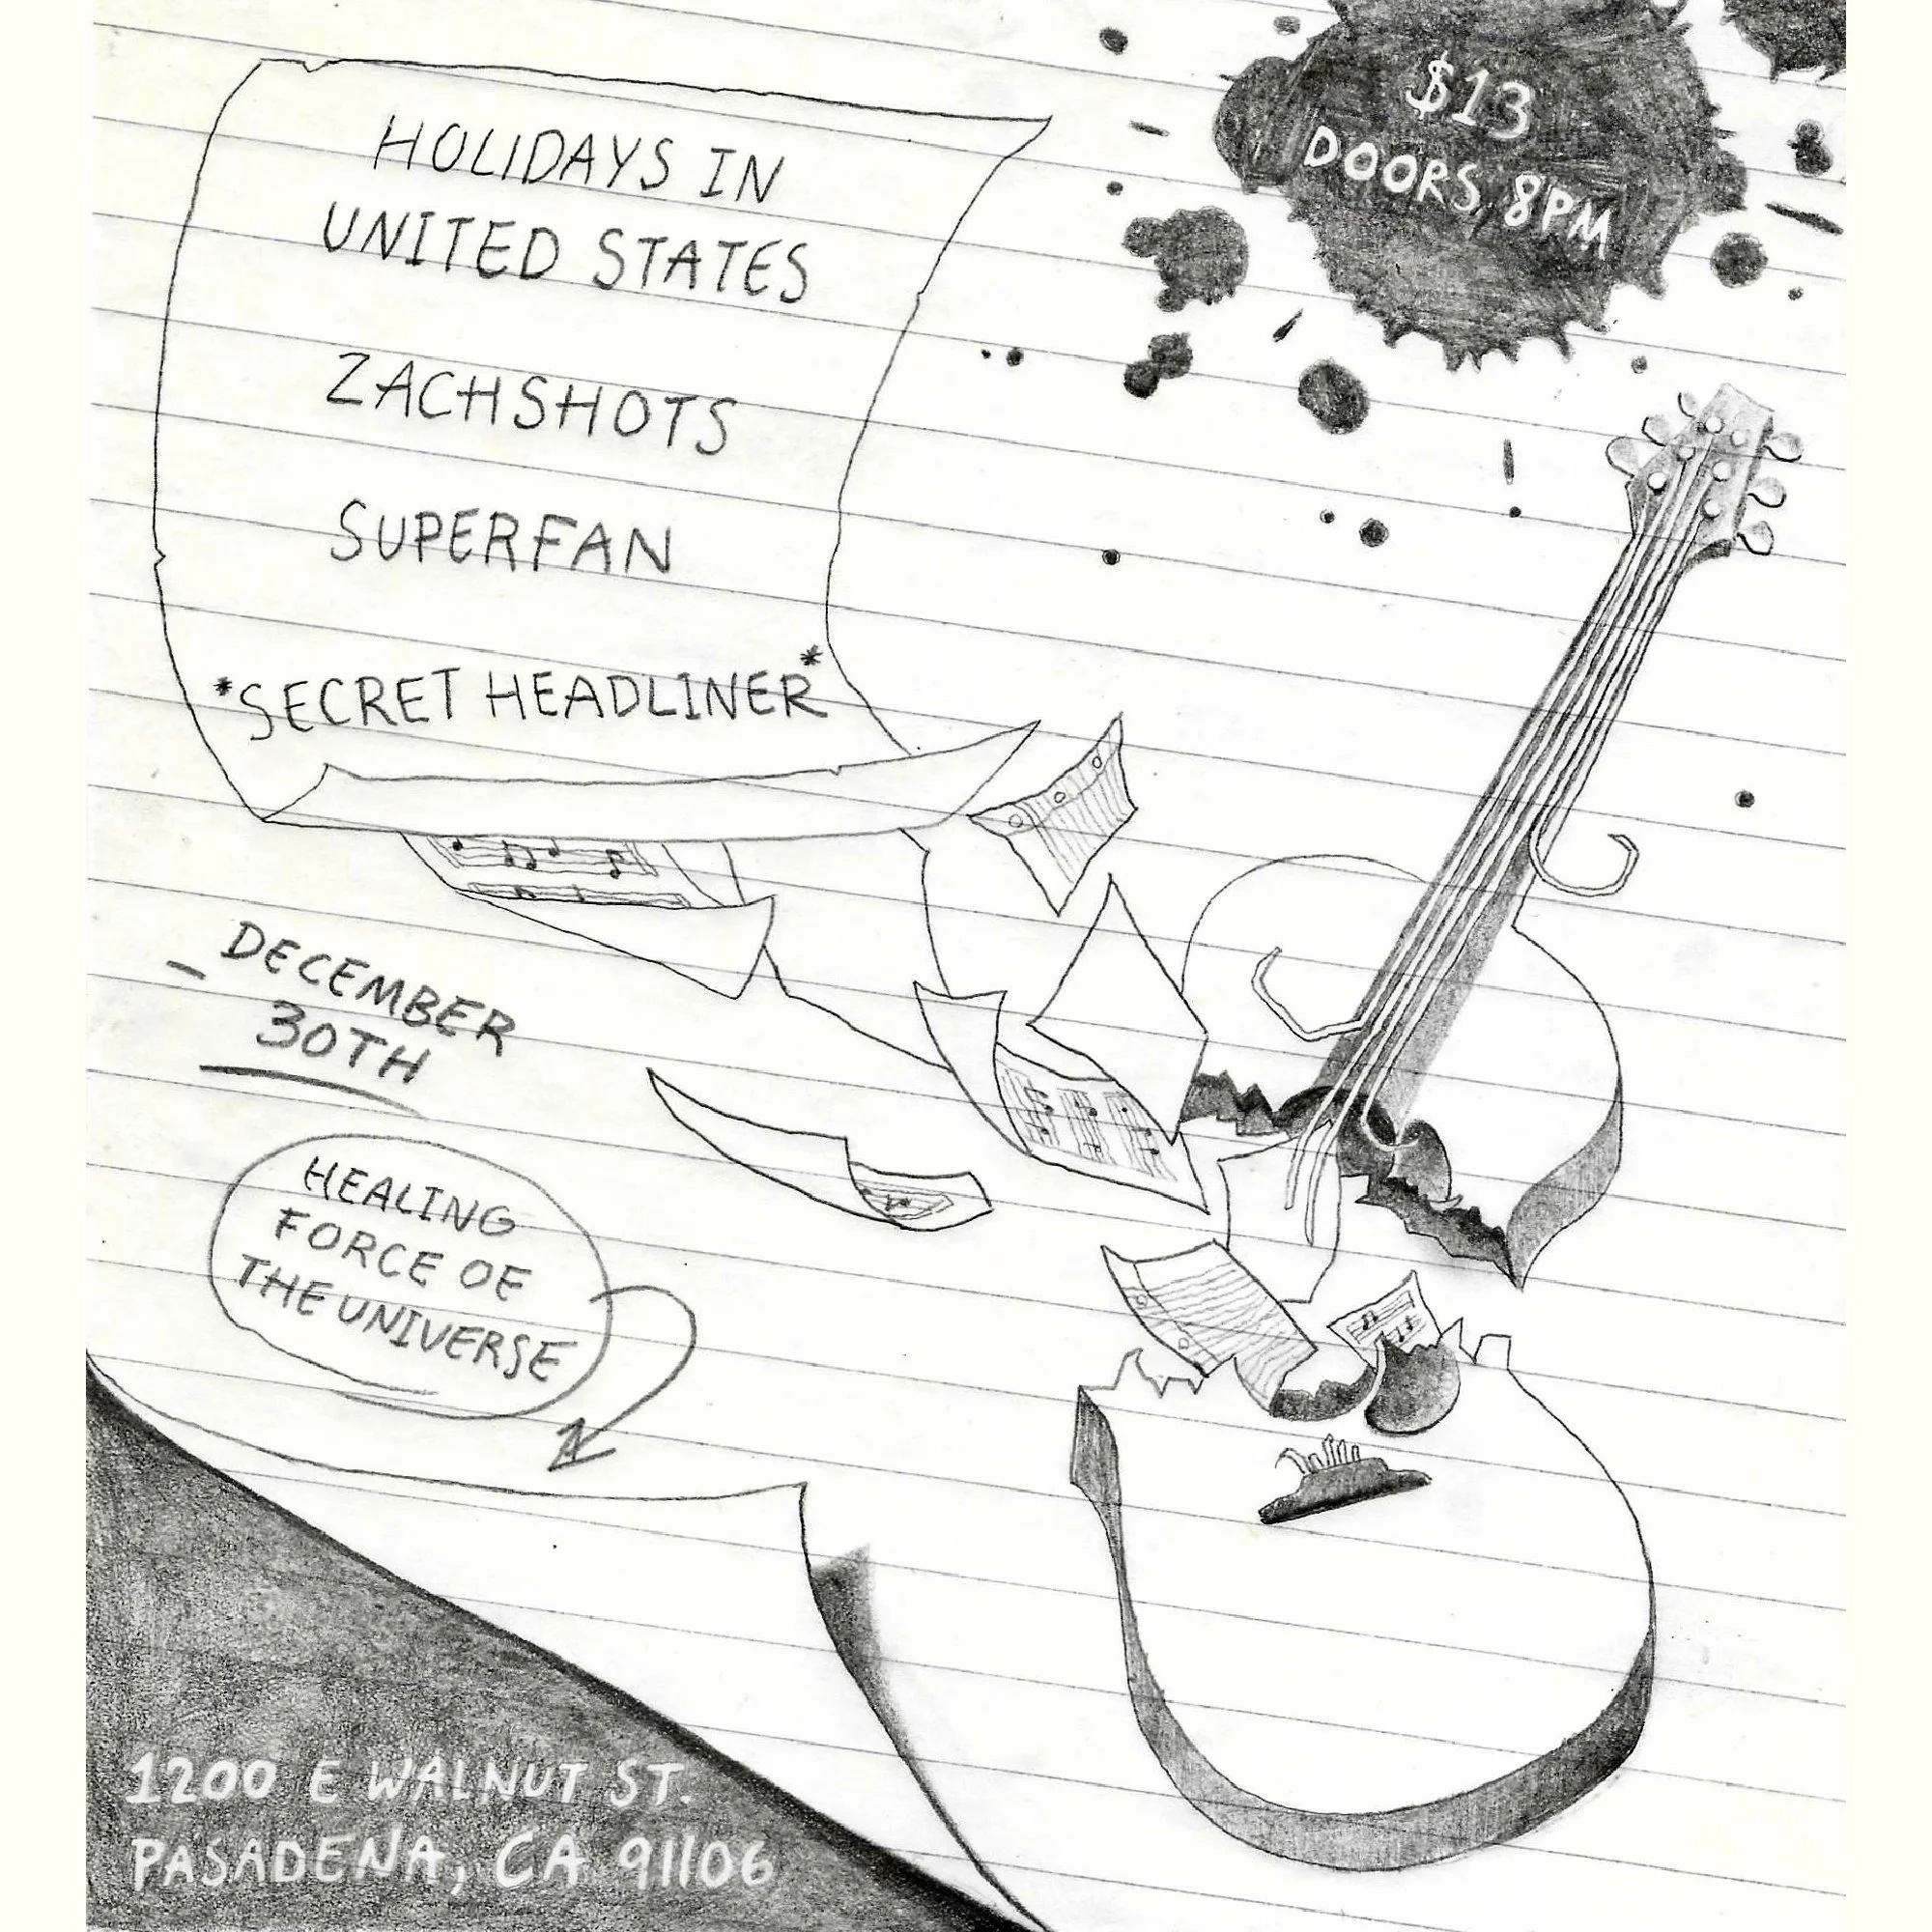 $13
DOORS 8PM
HOLIDAYS IN
UNITED STATES
ZACHSHOTS
SUPERFAN
*SECRET HEADLINER*
DECEMBER
30TH
HEALING
FORCE OF
THE UNIVERSE
1200 E WALNUT ST.
PASADENA, CA 91106